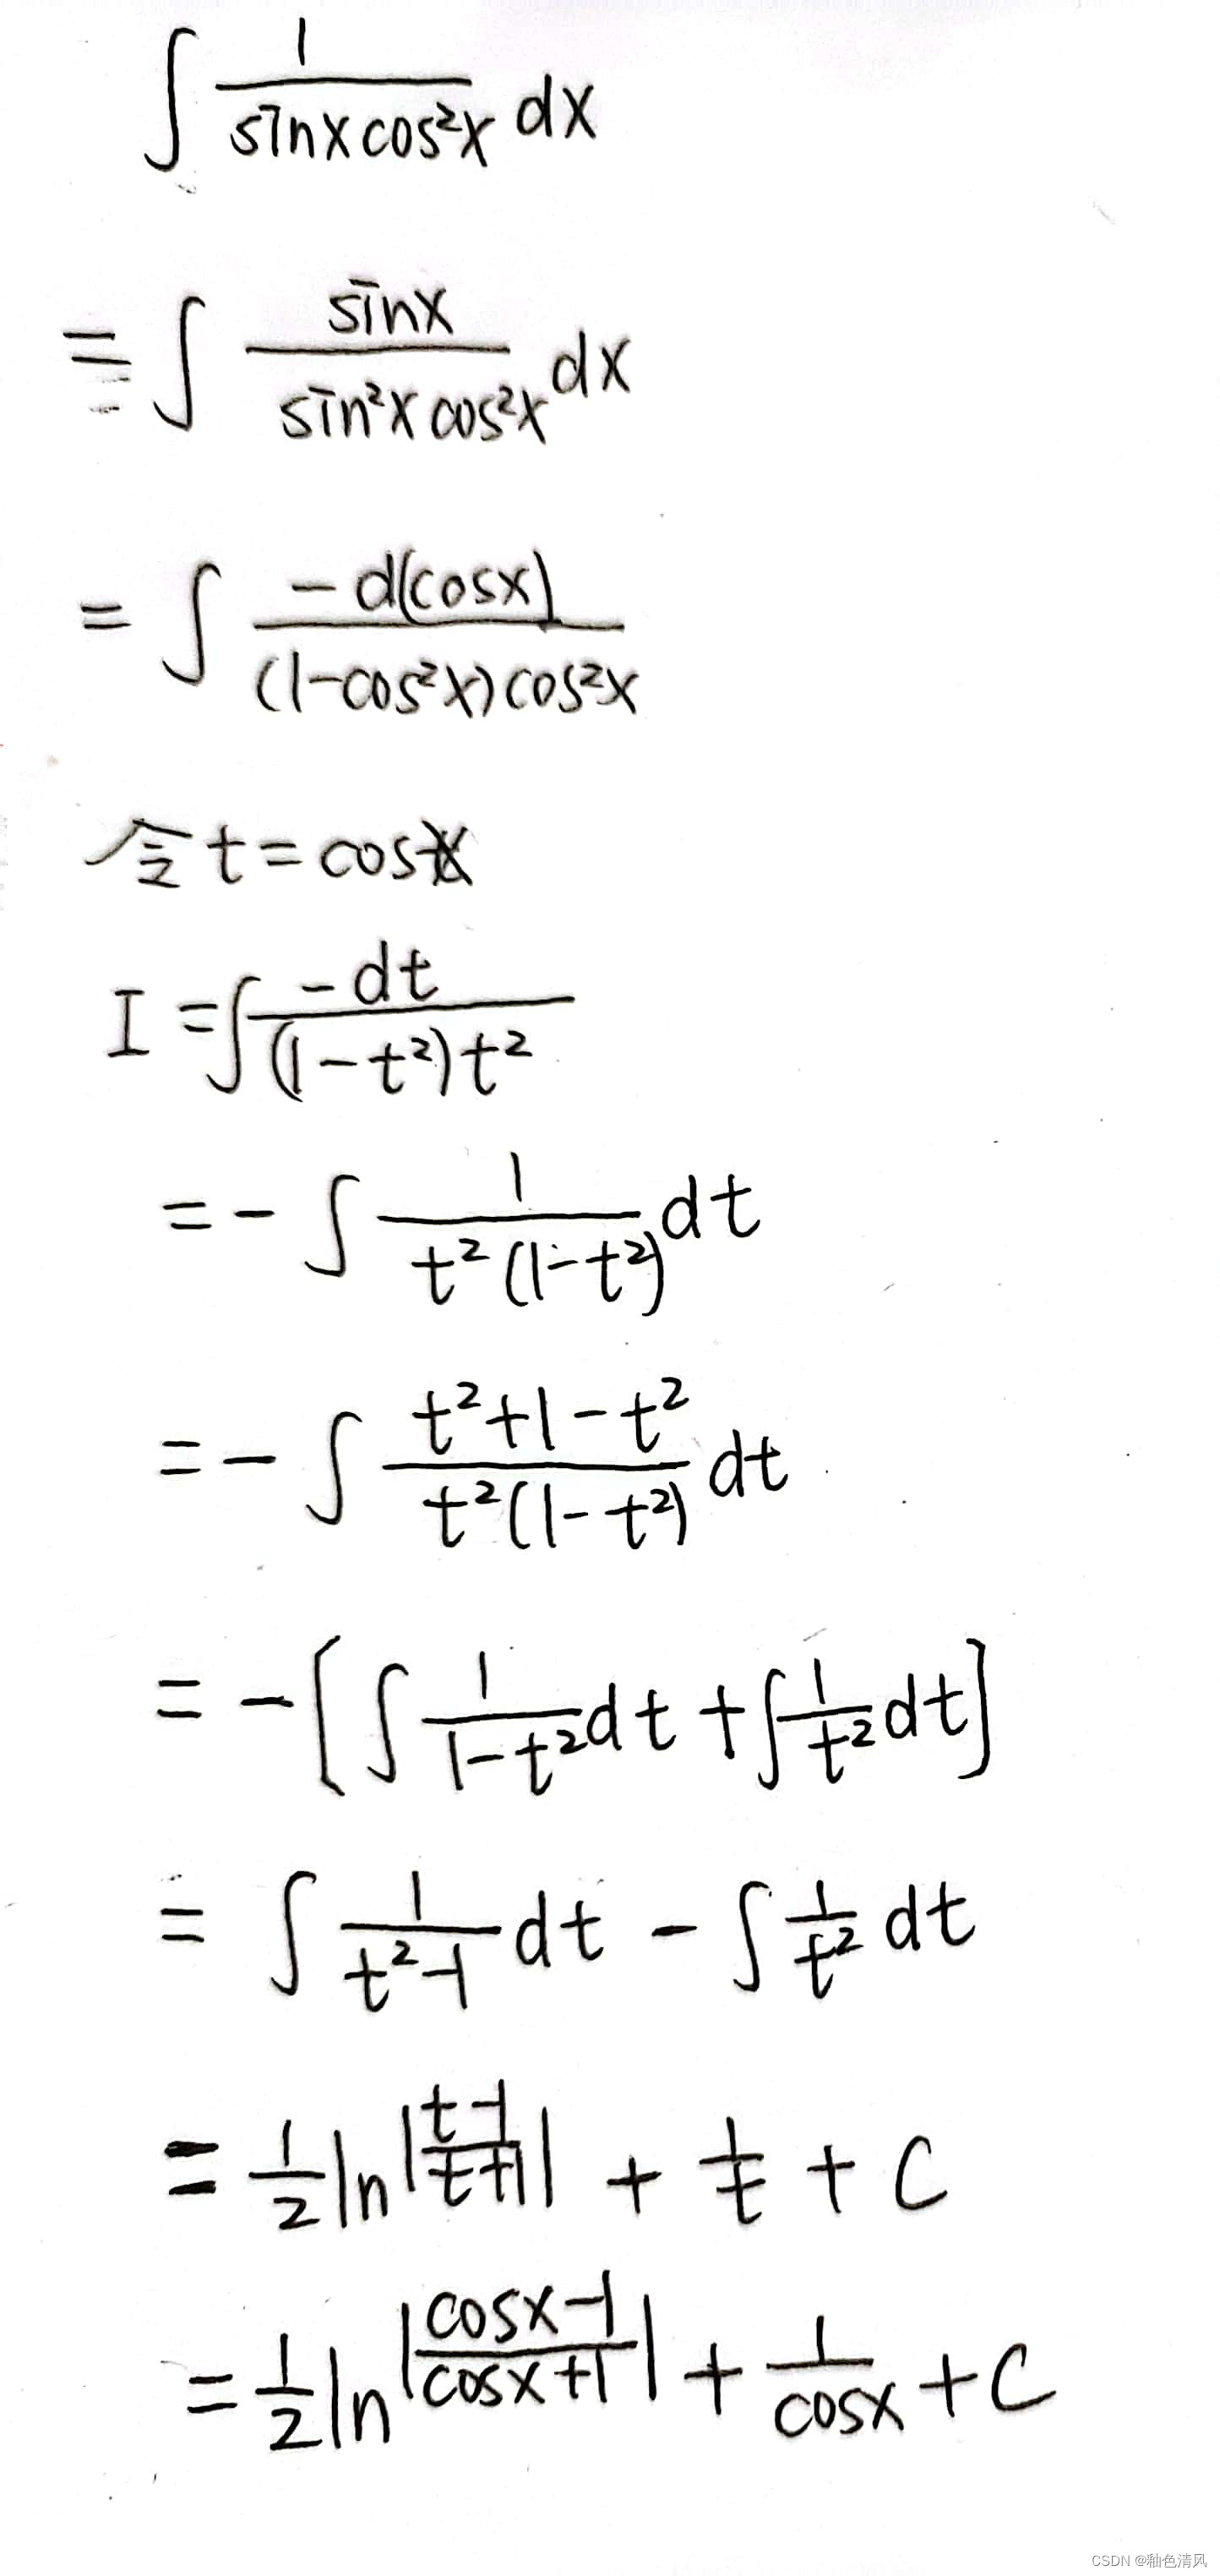 ∫ 1/(sinx cos²x) dx
= ∫ sinx/(sin²x cos²x) dx
= ∫ -d(cosx)/((1-cos²x)cos²x)
令 t = cosx
I = ∫ -dt/((1-t²)t²)
= - ∫ 1/(t²(1-t²)) dt
= - ∫ (t²+1-t²)/(t²(1-t²)) dt
= - [∫ 1/(1-t²) dt + ∫ 1/t² dt]
= ∫ 1/(t²-1) dt - ∫ 1/t² dt
= 1/2 ln|(t-1)/(t+1)| + 1/t + C
= 1/2 ln|(cosx-1)/(cosx+1)| + 1/cosx + C
CSDN @釉色清风